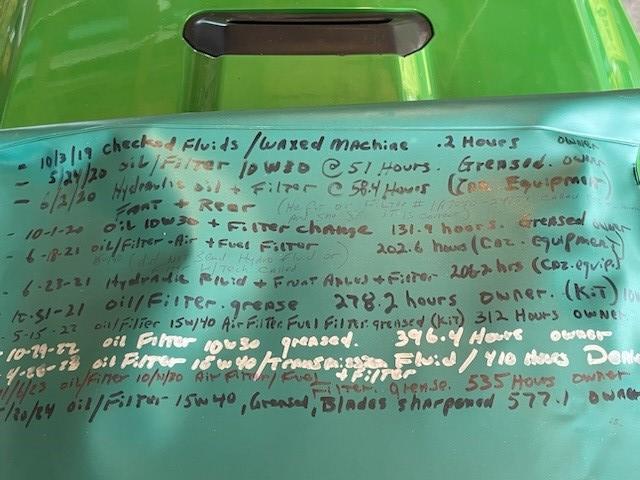 - 10/3/19 Checked Fluids / waxed Machine .2 Hours owner
- 5/24/20 oil/Filter 10W30 @ 51 Hours. Greased. owner
- 6/2/20 Hydraulic oil + Filter @ 58.4 Hours (Coz. Equipment)
Front + Rear
- 10-1-20 oil 10W30 + Filter change 131.9 hours. Greased owner
- 6-18-21 oil/Filter-Air + Fuel Filter 202.6 hours (Coz. equipment)
- 6-23-21 Hydraulic Fluid + Front Axles + Filter 206.2 hrs (Coz. equip.)
31-21 oil/Filter. grease 278.2 hours owner. (Kit)
- 5-15-22 oil/Filter 15W/40 Air Filter Fuel Filter greased (Kit) 312 Hours owner
- 10-29-22 oil Filter 10W30 greased. 396.4 Hours owner
oil Filter 15W40/Transmission Fluid / 410 Hours
+ Filter
oil/Filter Air Filter/Fuel
Filter. Grease. 535 Hours owner
/20/24 oil/Filter 15W40, Greased, Blades sharpened 577.1 owner